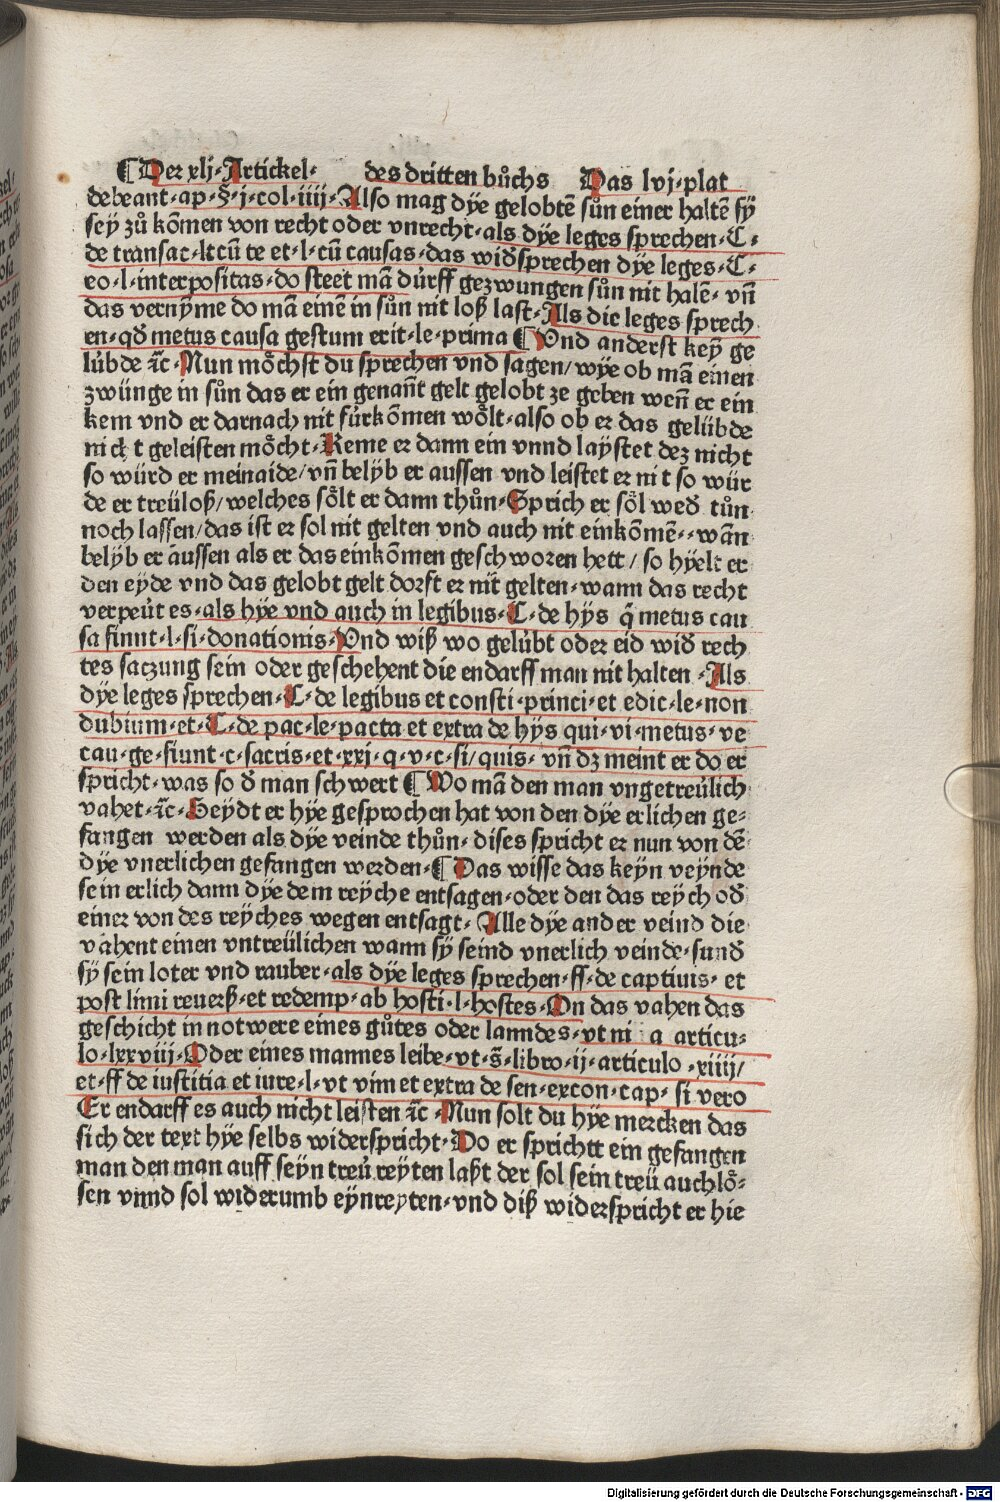 ¶Der xlj·Artickel· des dritten bůchs Das lvj·plat
debeant·ap·§·j·col·iiij·Also mag dÿe gelobtē sůn einer haltē sÿ
seÿ zů kōmen von recht oder vnrecht·als dÿe leges sprechen·C·
de transac·l·cū te et·l·cū causas·das widsprechen dÿe leges·C·
eo·l·interpositas·do steet mā dürff gezwungen sůn nit halē·vn̄
das vernÿme do mā einē in sůn nit loß last·Als die leges sprech
en·qd metus causa gestum erit·le·prima ¶Vnd anderst keÿ ge
lübde ꝛc·Nun möchst du sprechen vnd sagen/wÿe ob mā einen
zwünge in sůn das er ein genant gelt gelobt ze geben wen̄ er ein
kem vnd er darnach nit fürkōmen wölt·also ob er das gelübde
nicht geleisten möcht·Keme er dann ein vnnd laÿstet dez nicht
so würd er meinaide/vn̄ belÿb er aussen vnd leistet er nit so wür
de er treüloß/welches sölt er dann thůn·Sprich er söl wed tůn
noch lassen/das ist er sol nit gelten vnd auch nit einkōmē··wān
belÿb er aussen als er das einkōmen geschworen hett/so hÿelt er
den eyde vnd das gelobt gelt dorft er nit gelten·wann das recht
verpeüt es·als hÿe vnd auch in legibus·C·de hÿs q̄ metus cau
sa fiunt·l·si·donationis·Vnd wiß wo gelübt oder eid wid rech
tes saczung sein oder geschehent die endarff man nit halten·Als
dÿe leges sprechen·C·de legibus et consti·princi·et edic·le·non
dubium·et·C·de pac·le·pacta et extra de hÿs qui·vi·metus·ve
cau·ge·fiunt·c·sacris·et·xxj·q·v·c·si/quis·vn̄ dz meint er do er
spricht·was so d man schwert ¶Wo mā den man vngetreülich
vahet·ꝛc·Seÿdt er hÿe gesprochen hat von den dÿe erlichen ge⸗
fangen werden als dÿe veinde thůn·dises spricht er nun von dē
dÿe vnerlichen gefangen werden·¶Das wisse das keÿn veÿnde
sein erlich dann dÿe dem reÿche entsagen·oder den das reÿch od
einer von des reÿches wegen entsagt·Alle dÿe ander veind die
vahent einen vntreülichen wann sÿ seind vnerlich veinde·sund
sÿ sein loter vnd rauber·als dÿe leges sprechen·ff·de captiuis·et
post limi reuerß·et redemp·ab hosti·l·hostes·On das vahen das
geschicht in notwere eines gůtes oder lanndes·vt articu⸗
lo·lxxviij·Oder eines mannes leibe·vt·s̄·libro·ij·articulo·xiiij/
et·ff de iustitia et iure·l·vt vim et extra de sen·excon·cap·si vero
Er endarff es auch nicht leisten ꝛc·Nun solt du hÿe mercken das
sich der text hÿe selbs widerspricht·Do er sprichtt ein gefangen
man den man auff seÿn treü reÿten laßt der sol sein treü auch lö⸗
sen vnnd sol widerumb eÿnreyten·vnd diß widerspricht er hie
Digitalisierung gefördert durch die Deutsche Forschungsgemeinschaft - DFG